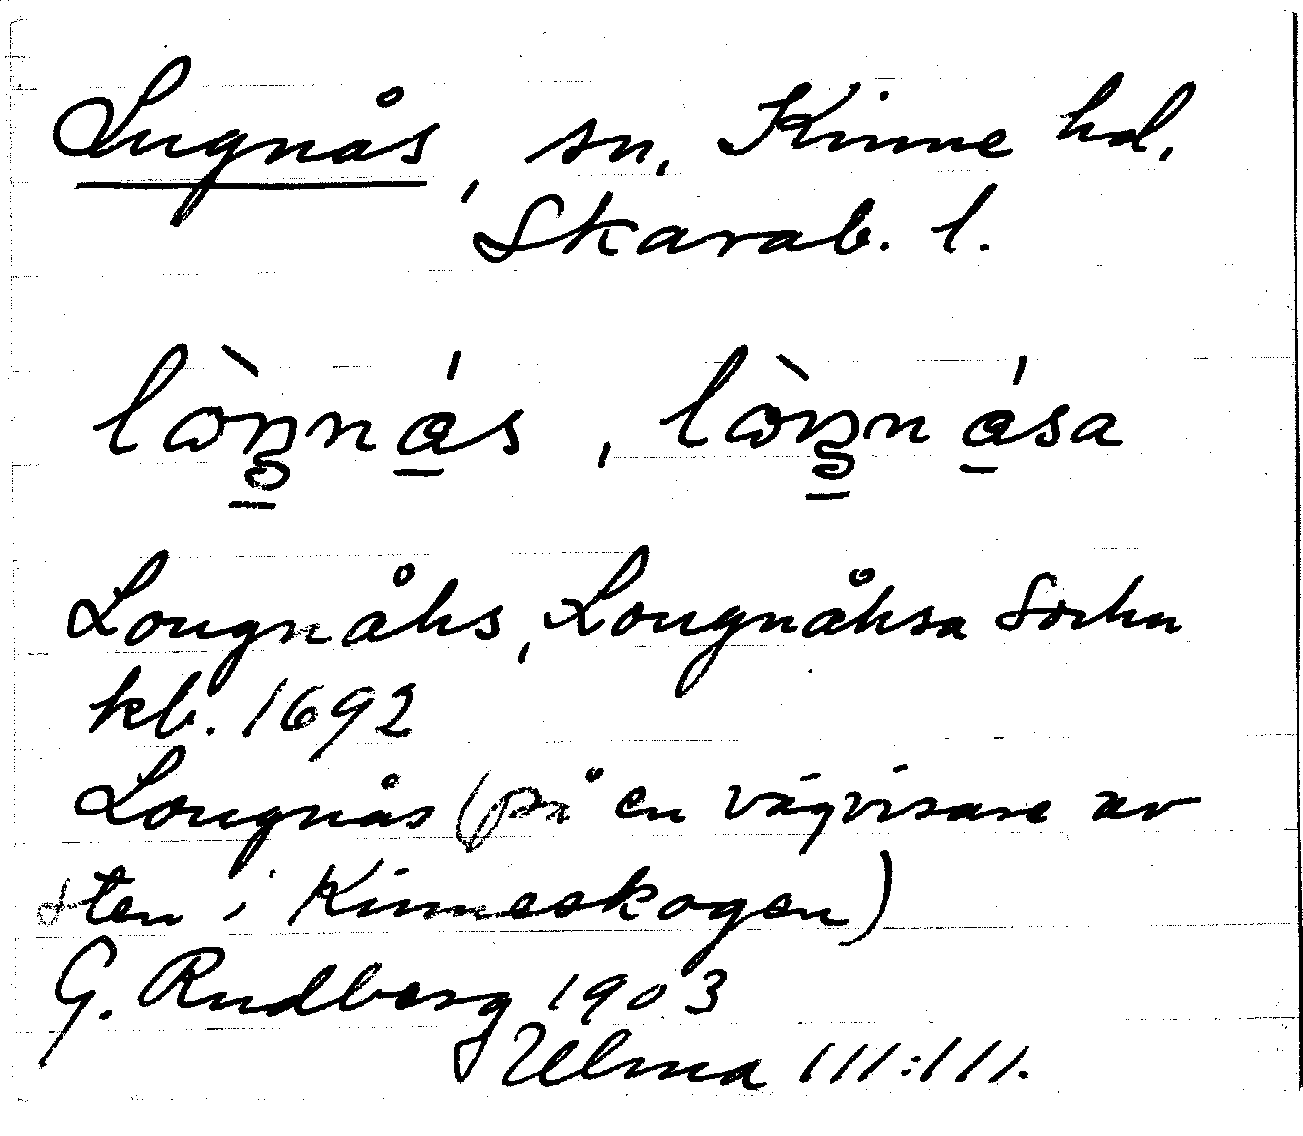 Lugnås, sn, Kinne hd,
Skarab. l.
lòŋnás, lòŋnása
Lougnåhs, Lougnåhsa Sochn
kb. 1692
Lougnås (på en vägvisare av
sten i Kinneskogen)
G. Rudberg 1903
Ulma 111:111.